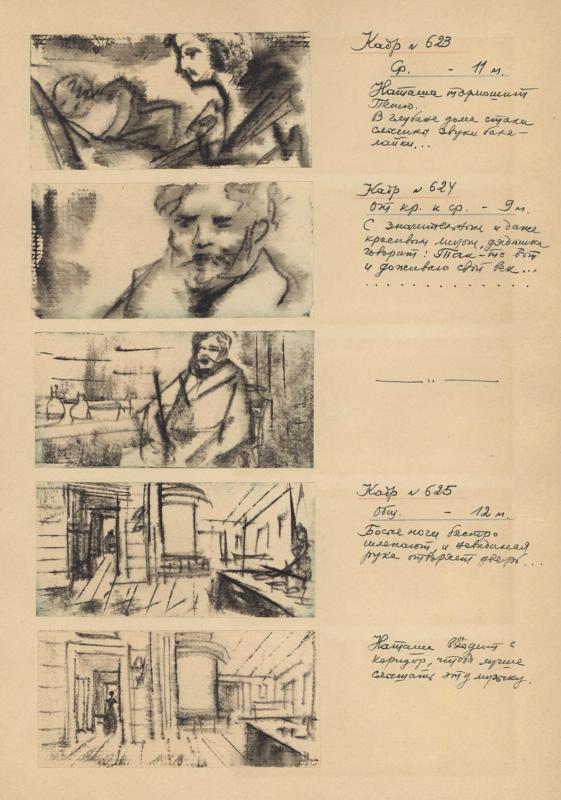 Кадр № 623
Ср. - 11 м.
Наташа тормошит
Петю.
В глубине дома стали
слышны звуки бала-
лайки...
Кадр № 624
от кр. к ср. - 9 м.
С значительным и даже
красивым лицом, дядюшка
говорит: Так-то вот
и доживаю свой век...
. . . . . . . . . . . .
— " —
Кадр № 625
Общ. - 12 м.
Босые ноги быстро
шлепают, и невидимая
рука отворяет дверь...
Наташа входит в
коридор, чтобы лучше
слышать эту музыку.